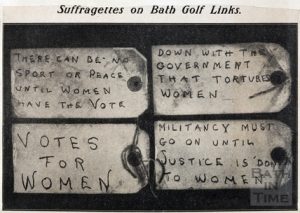 Suffragettes on Bath Golf Links.
THERE CAN BE NO
SPORT OR PEACE
UNTIL WOMEN
HAVE THE VOTE
DOWN WITH THE
GOVERNMENT
THAT TORTURES
WOMEN
VOTES
FOR
WOMEN
MILITANCY MUST
GO ON UNTIL
JUSTICE IS DONE
TO WOMEN
BATH
IN
TIME